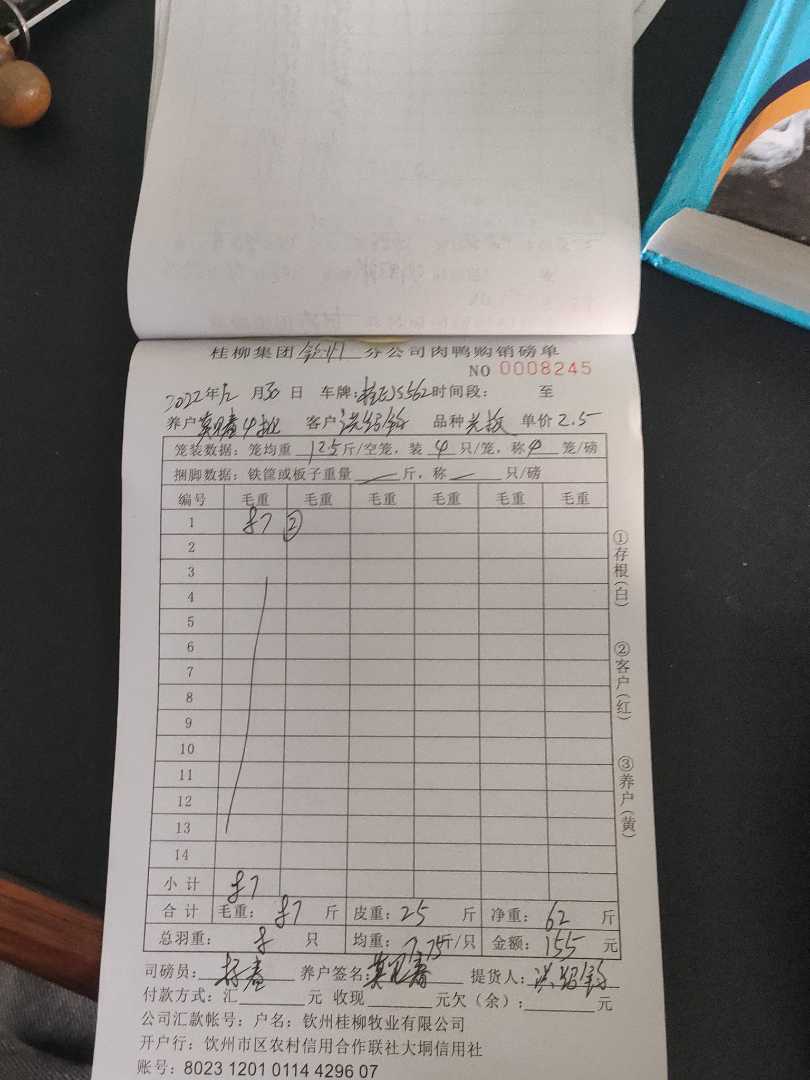 桂柳集团钦州分公司肉鸭购销磅单
NO 0008245
2022年12月30日 车牌: 时间段: 至
养户 客户 品种 单价2.5
笼装数据：笼均重12.5斤/空笼，装4只/笼，称4笼/磅
捆脚数据：铁筐或板子重量 斤，称 只/磅
编号 毛重 毛重 毛重 毛重 毛重 毛重
1 87 ②
2
3
4
5
6
7
8
9
10
11
12
13
14
小计 87
合计 毛重：87斤 皮重：25斤 净重：62斤
总羽重：8只 均重：7.75斤/只 金额：155元
司磅员： 养户签名： 提货人：
付款方式：汇 元 收现 元欠（余）： 元
公司汇款帐号：户名：钦州桂柳牧业有限公司
开户行：钦州市区农村信用合作联社大垌信用社
账号：8023 1201 0114 4296 07
①存根（白）
②客户（红）
③养户（黄）